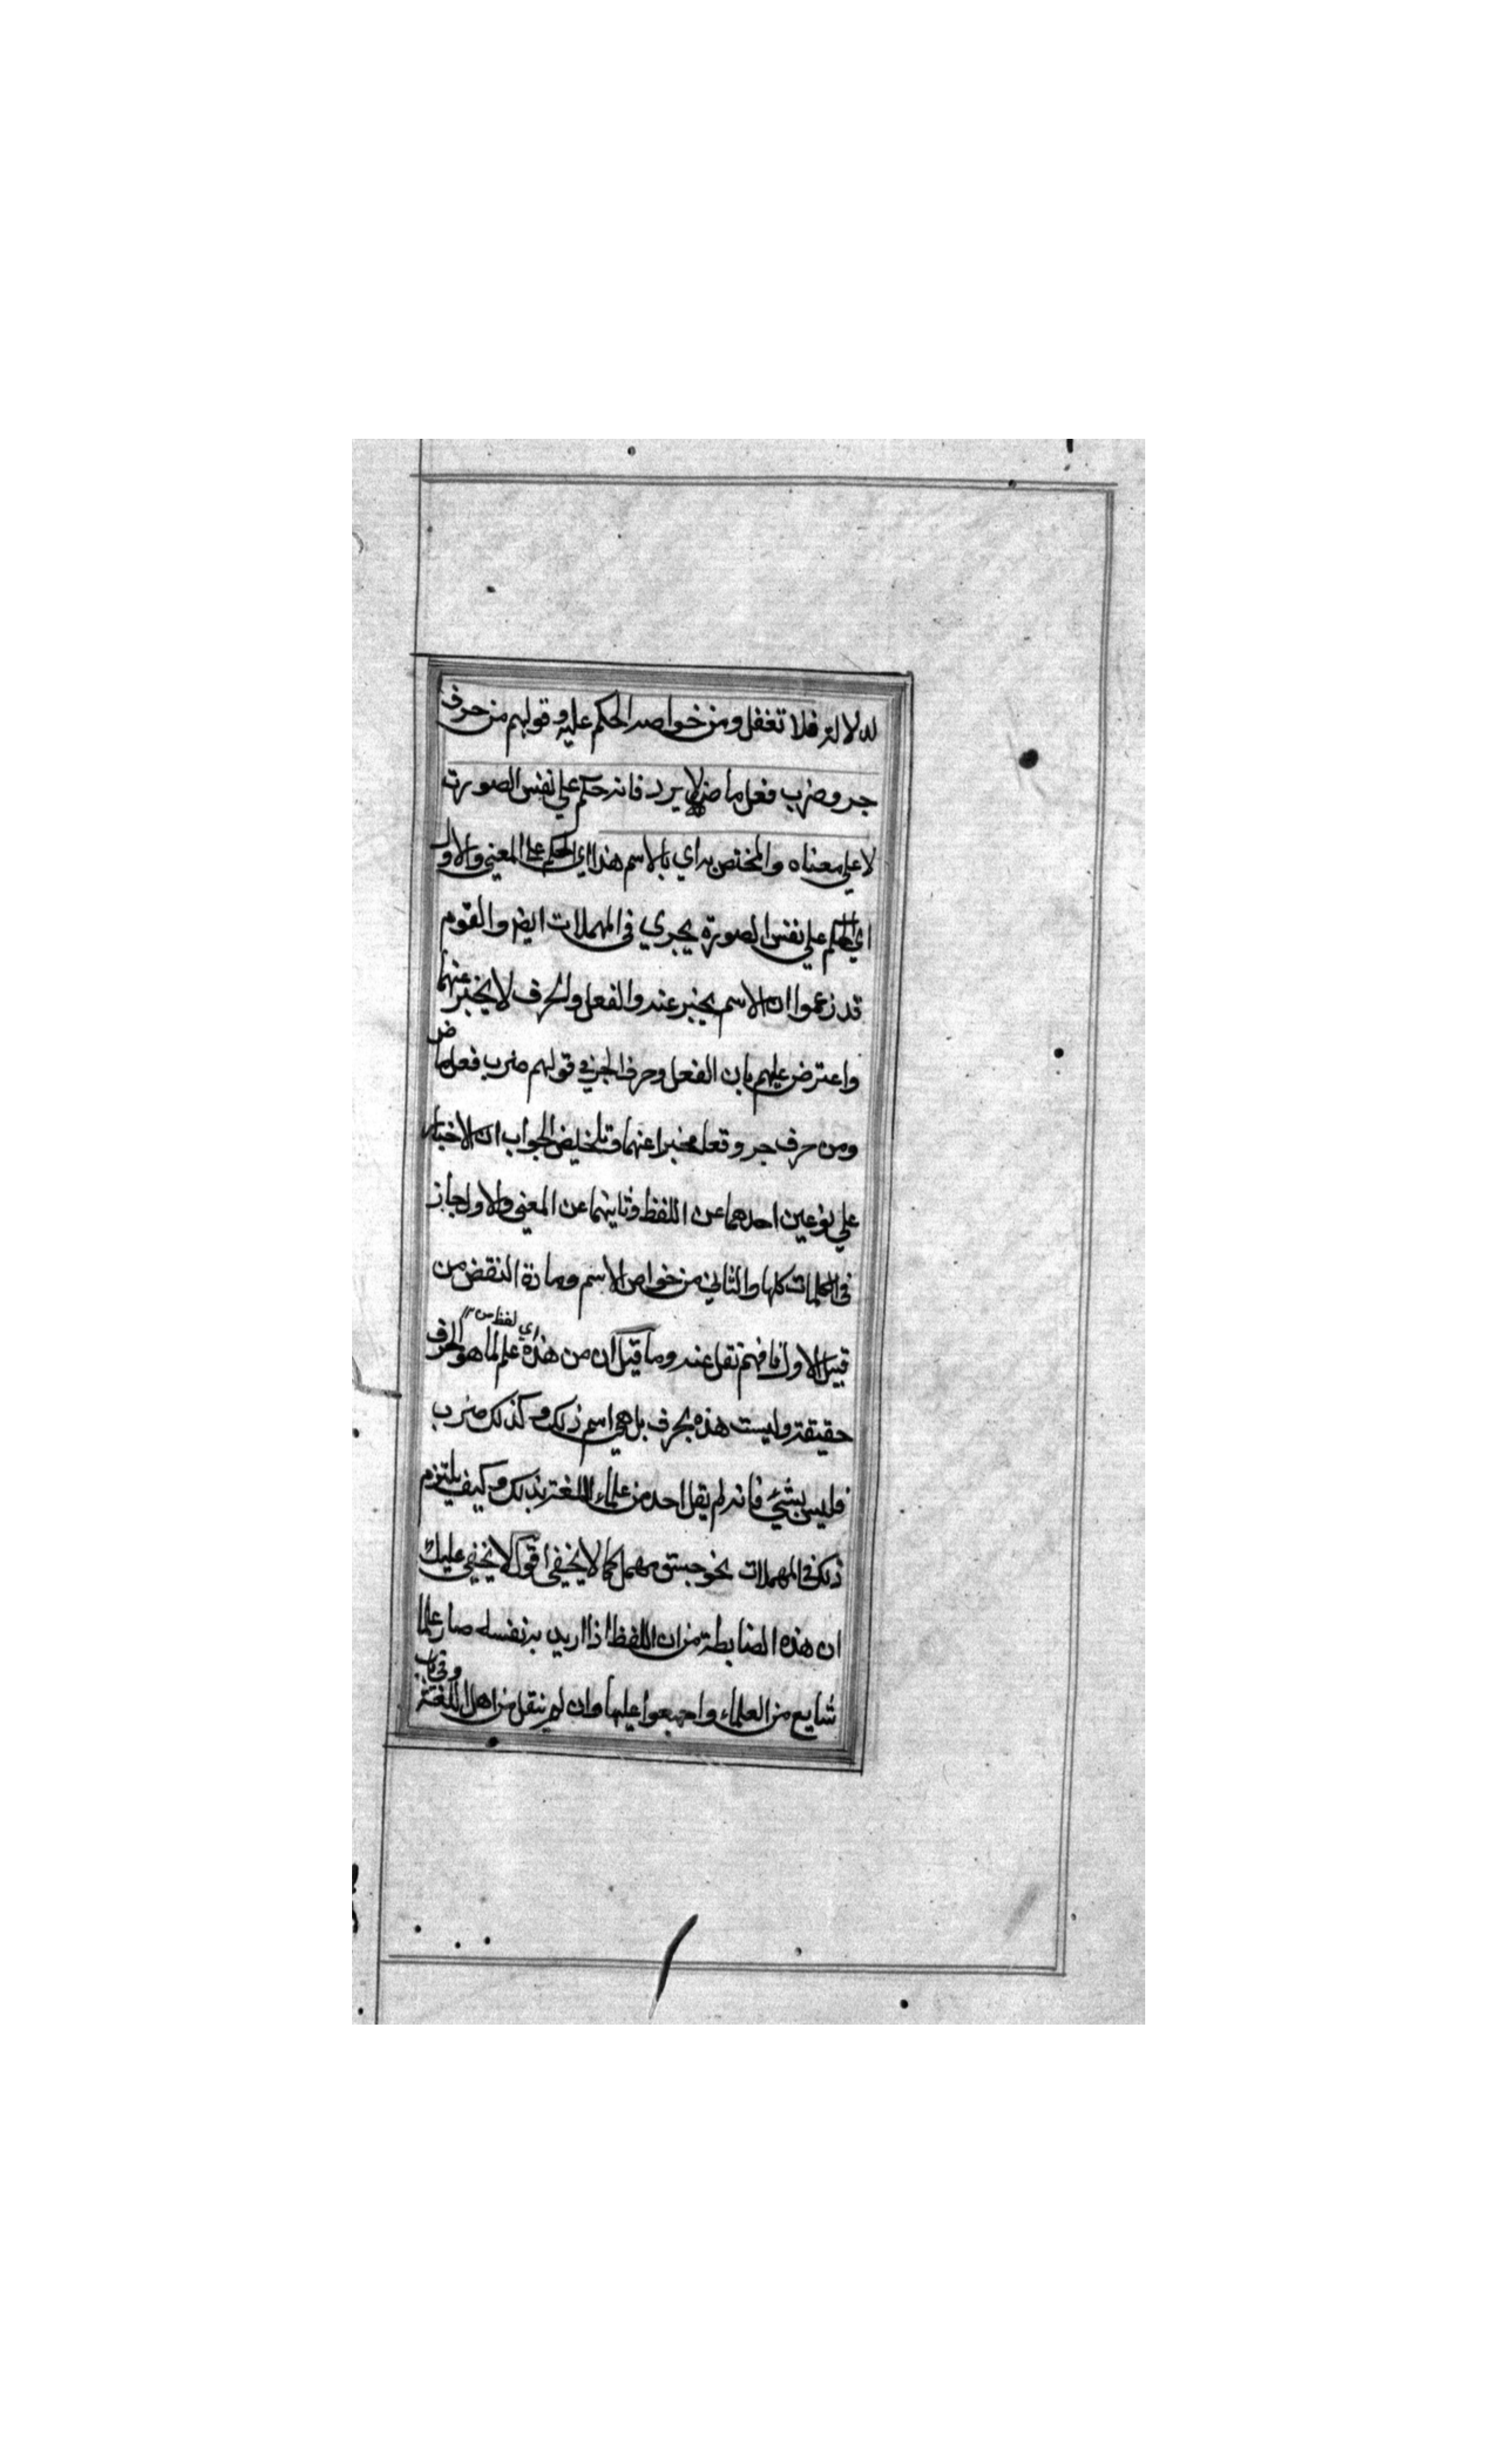 له لالته فلا تغفل ومن خواصه الحكم عليه وقولهم من حرف
جر وضرب فعل ماض لا يرد فانه حكم علي نفس الصورت
لا علي معناه والمختص به اي بالاسم هذا اي الحكم علي المعني والاول
اي الحكم علي نفس الصورة يجري في المهملات ايض والقوم
قد زعموا ان الاسم يخبر عنه والفعل والحرف لا يخبر عنهما
واعترض عليهم بان الفعل وحرف الجر في قولهم ضرب فعل ماض
ومن حرف جر وقعا مخبرا عنهما وتلخيص الجواب ان الاخبار
علي نوعين احدهما عن اللفظ وثانيهما عن المعني والاول جاز
في الكلمات كلها والثاني من خواص الاسم ومادة النقض من
قبيل الاول فافهم نقل عنه وما قيل ان من هذه علم لما هو الحرف
اي لفظ من ١٢
حقيقة وليست هذه بحرف بل هي اسم ذلك وكذلك ضرب
فليس بشيء فانه لم يقل احد من علماء اللغة بذلك وكيف يلتزم
ذلك في المهملات نحو جسق مهمل كما لا يخفي اقول لا يخفي عليك
ان هذه الضابطة من ان اللفظ اذا اريد به نفسه صار علما
شايع من العلماء واجمعوا عليها وان لم ينقل من اهل اللغة
وفي باب